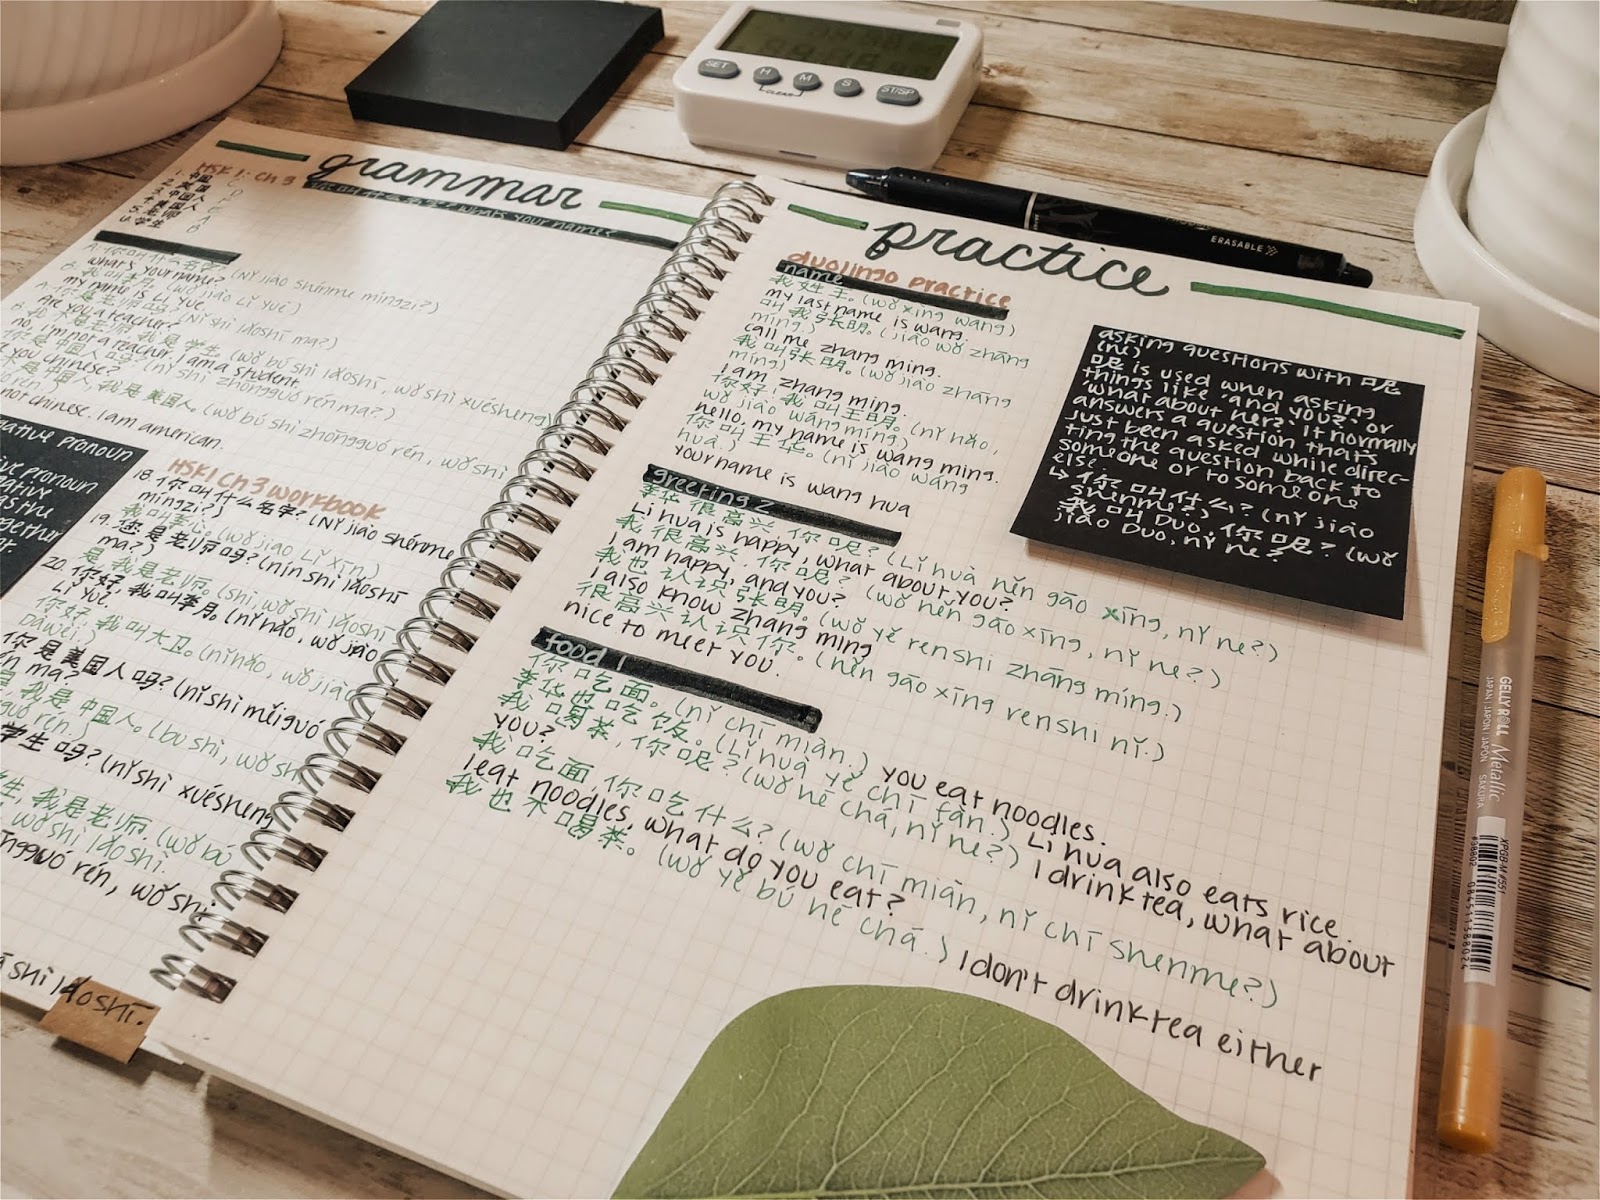 SET
H
M
S
ST/SP
CLEAR
ERASABLE
grammar
HSK 1: Ch 3
what's your name?
1. 中国
2. 美国
3. 中国人
4. 老师
5. 学生
A: 你叫什么名字? (Nǐ jiào shénme míngzi?)
what's your name?
B: 我叫李月。(wǒ jiào Lǐ yuè)
my name is Li Yue.
A: 你是老师吗? (Nǐ shì lǎoshī ma?)
Are you a teacher?
不是老师, 我是学生。(wǒ bú shì lǎoshī, wǒ shì xuéshēng)
no, I'm not a teacher. I am a student.
是中国人吗? (nǐ shì zhōngguó rén ma?)
you chinese?
是中国人, 我是美国人。(wǒ bú shì zhōngguó rén, wǒ shì
not chinese. I am american.
pronoun
pronoun
HSK1 Ch 3 workbook
18. 你叫什么名字? (Nǐ jiào shénme
míngzi?)
我叫李心。(wǒ jiào Lǐ Xīn)
19. 您是老师吗? (nín shì lǎoshī
ma?)
是, 我是老师。(shì, wǒ shì lǎoshī
20. 你好, 我叫李月。(nǐ hǎo, wǒ jiào
Lǐ yuè.
你好, 我叫大卫。(nǐ hǎo, wǒ jiào
Dàwèi.)
你是美国人吗? (nǐ shì měiguó
ma?
我是中国人。(bú shì, wǒ sh
rén.)
学生吗? (nǐ shì xuéshēng
生, 我是老师. (wǒ bú
wǒ shì lǎoshī.
rén, wǒ shì
shì lǎoshī.
practice
duolingo practice
name
我姓王。(wǒ xìng wáng)
my last name is wang.
叫我张明。(jiào wǒ zhāng
míng.)
call me zhang ming.
我叫张明。(wǒ jiào zhāng
míng)
I am zhang ming.
你好, 我叫王明。(nǐ hǎo,
wǒ jiào wáng míng)
hello, my name is wang ming.
你叫王华。(nǐ jiào wáng
huá.)
your name is wang hua
greeting 2
李华很高兴, 你呢? (Lǐ huà hěn gāo xīng, nǐ ne?)
Li hua is happy, what about you?
我很高兴, 你呢? (wǒ hěn gāo xìng, nǐ ne?)
I am happy, and you?
我也认识张明。(wǒ yě renshi zhāng míng.)
I also know zhang ming
很高兴认识你。(hěn gāo xìng renshi nǐ.)
nice to meet you.
food 1
你吃面。(nǐ chī miàn.) you eat noodles.
李华也吃饭。(Lǐ huà yě chī fàn.) Li hua also eats rice.
我喝茶, 你呢? (wǒ hē chá, nǐ ne?) I drink tea, what about
you?
我吃面, 你吃什么? (wǒ chī miàn, nǐ chī shenme?)
I eat noodles, what do you eat?
我也不喝茶。(wǒ yě bú hē chá.) I don't drink tea either
asking questions with 呢
(ne)
呢 is used when asking
things like 'and you?' or
'what about her?' It normally
answers a question that's
just been asked while direc-
ting the question back to
someone or to someone
else.
↳ 你叫什么? (nǐ jiào
shenme?)
我叫 Duo, 你呢? (wǒ
jiào Duo, nǐ ne?
GELLY ROLL Metallic
JAPAN
SAKURA
XPGB-M #551
#38802
084511388024